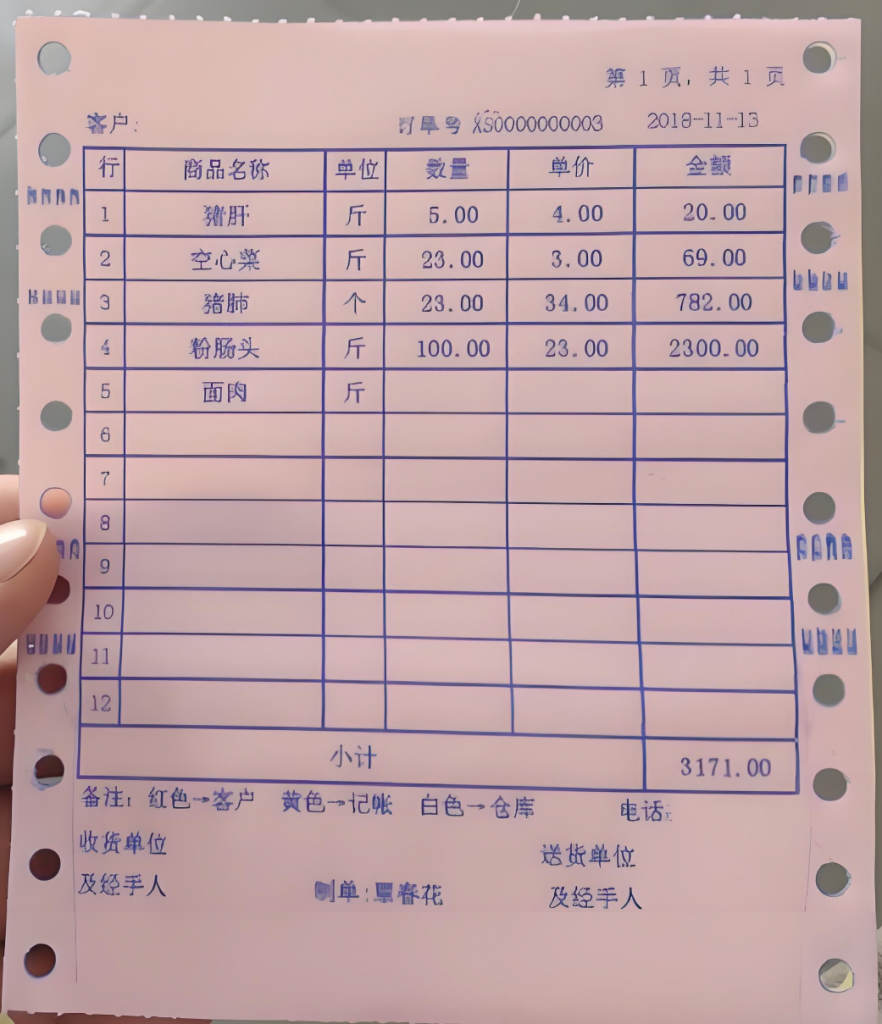 第 1 页，共 1 页
客户:
订单号 XS0000000003 2018-11-13
行 商品名称 单位 数量 单价 金额
1 猪肝 斤 5.00 4.00 20.00
2 空心菜 斤 23.00 3.00 69.00
3 猪肺 个 23.00 34.00 782.00
4 粉肠头 斤 100.00 23.00 2300.00
5 面肉 斤
6
7
8
9
10
11
12
小计 3171.00
备注: 红色→客户 黄色→记帐 白色→仓库 电话:
收货单位 送货单位
及经手人 制单:覃春花 及经手人